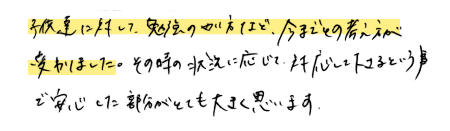 子供達に対して、勉強のやり方など、今までとの考え方が
変わりました。その時の状況に応じて、対応して下さるという事
で安心した部分がとても大きく思います。